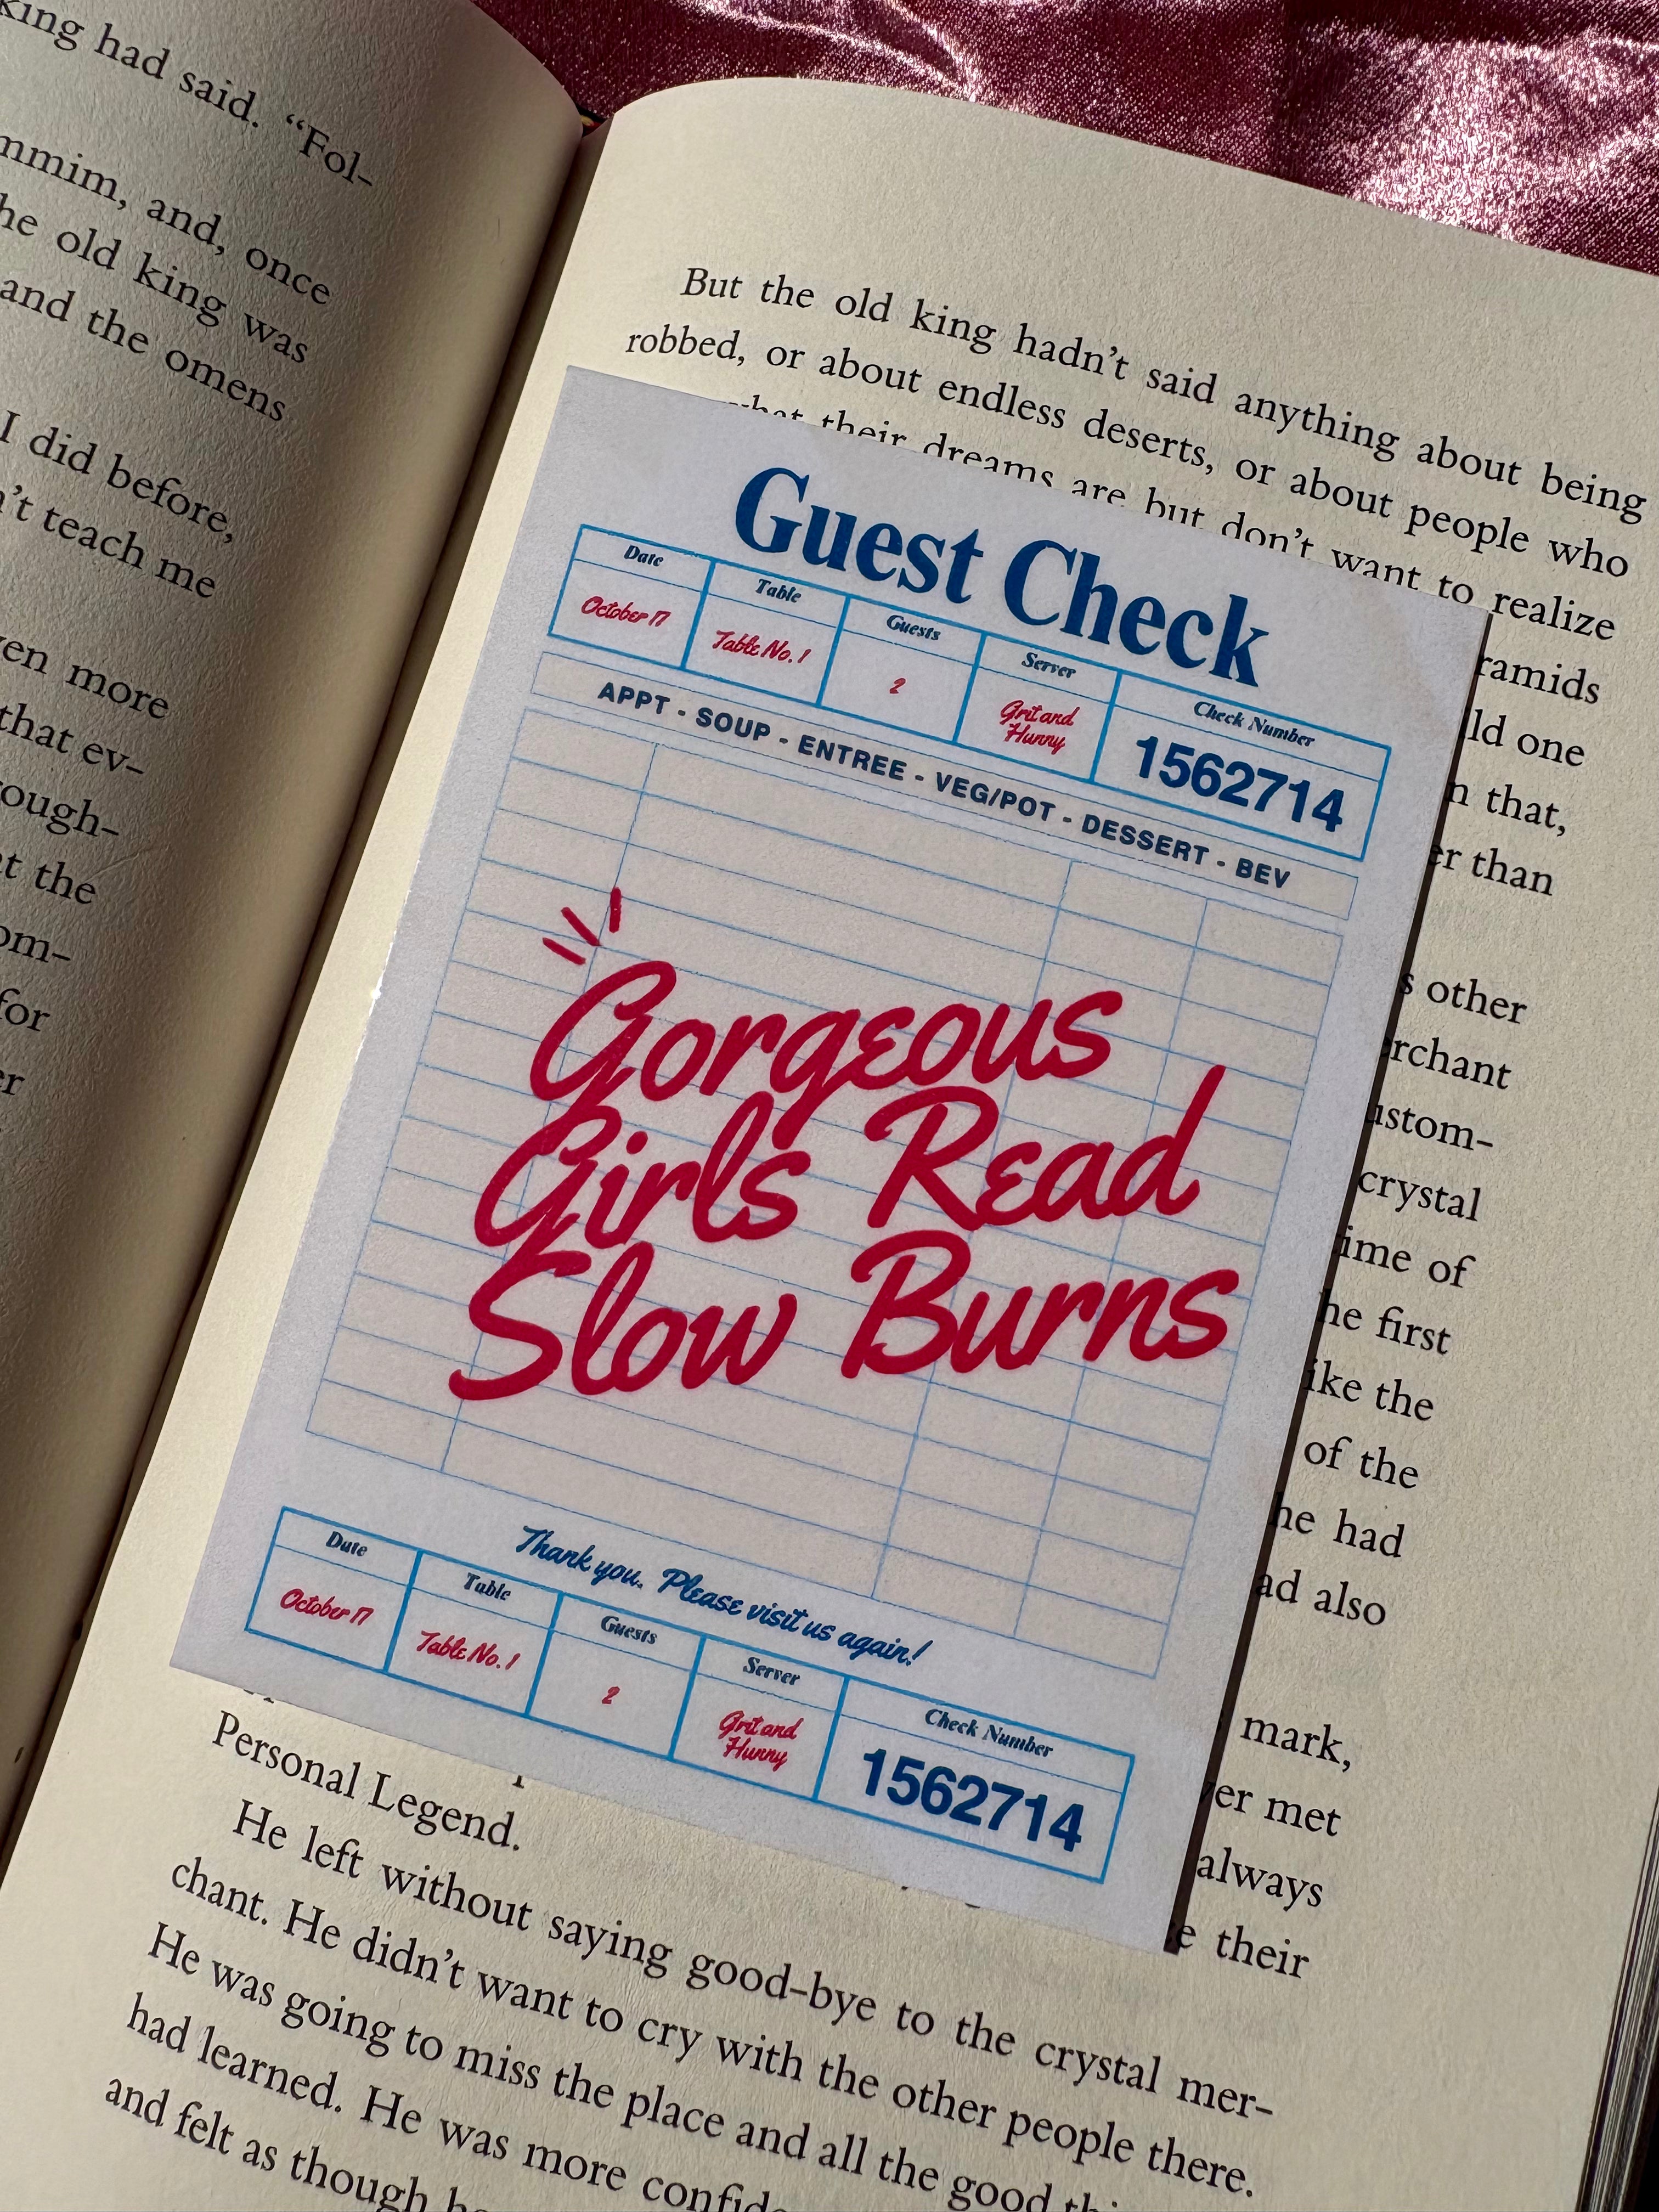 king had said. “Fol-
mmim, and, once
he old king was
and the omens
I did before,
’t teach me
en more
that ev-
ough-
t the
om-
for
er
But the old king hadn’t said anything about being
robbed, or about endless deserts, or about people who
what their dreams are but don’t want to realize
ramids
ld one
n that,
er than
s other
rchant
ustom-
crystal
ime of
he first
ike the
of the
he had
ad also
mark,
er met
always
e their
Guest Check
Date Table Guests Server Check Number
October 17 Table No. 1 2 Grit and Hunny 1562714
APPT - SOUP - ENTREE - VEG/POT - DESSERT - BEV
Gorgeous
Girls Read
Slow Burns
Thank you. Please visit us again!
Date Table Guests Server Check Number
October 17 Table No. 1 2 Grit and Hunny 1562714
Personal Legend.
He left without saying good-bye to the crystal mer-
chant. He didn’t want to cry with the other people there.
He was going to miss the place and all the good thi
had learned. He was more confid
and felt as though h